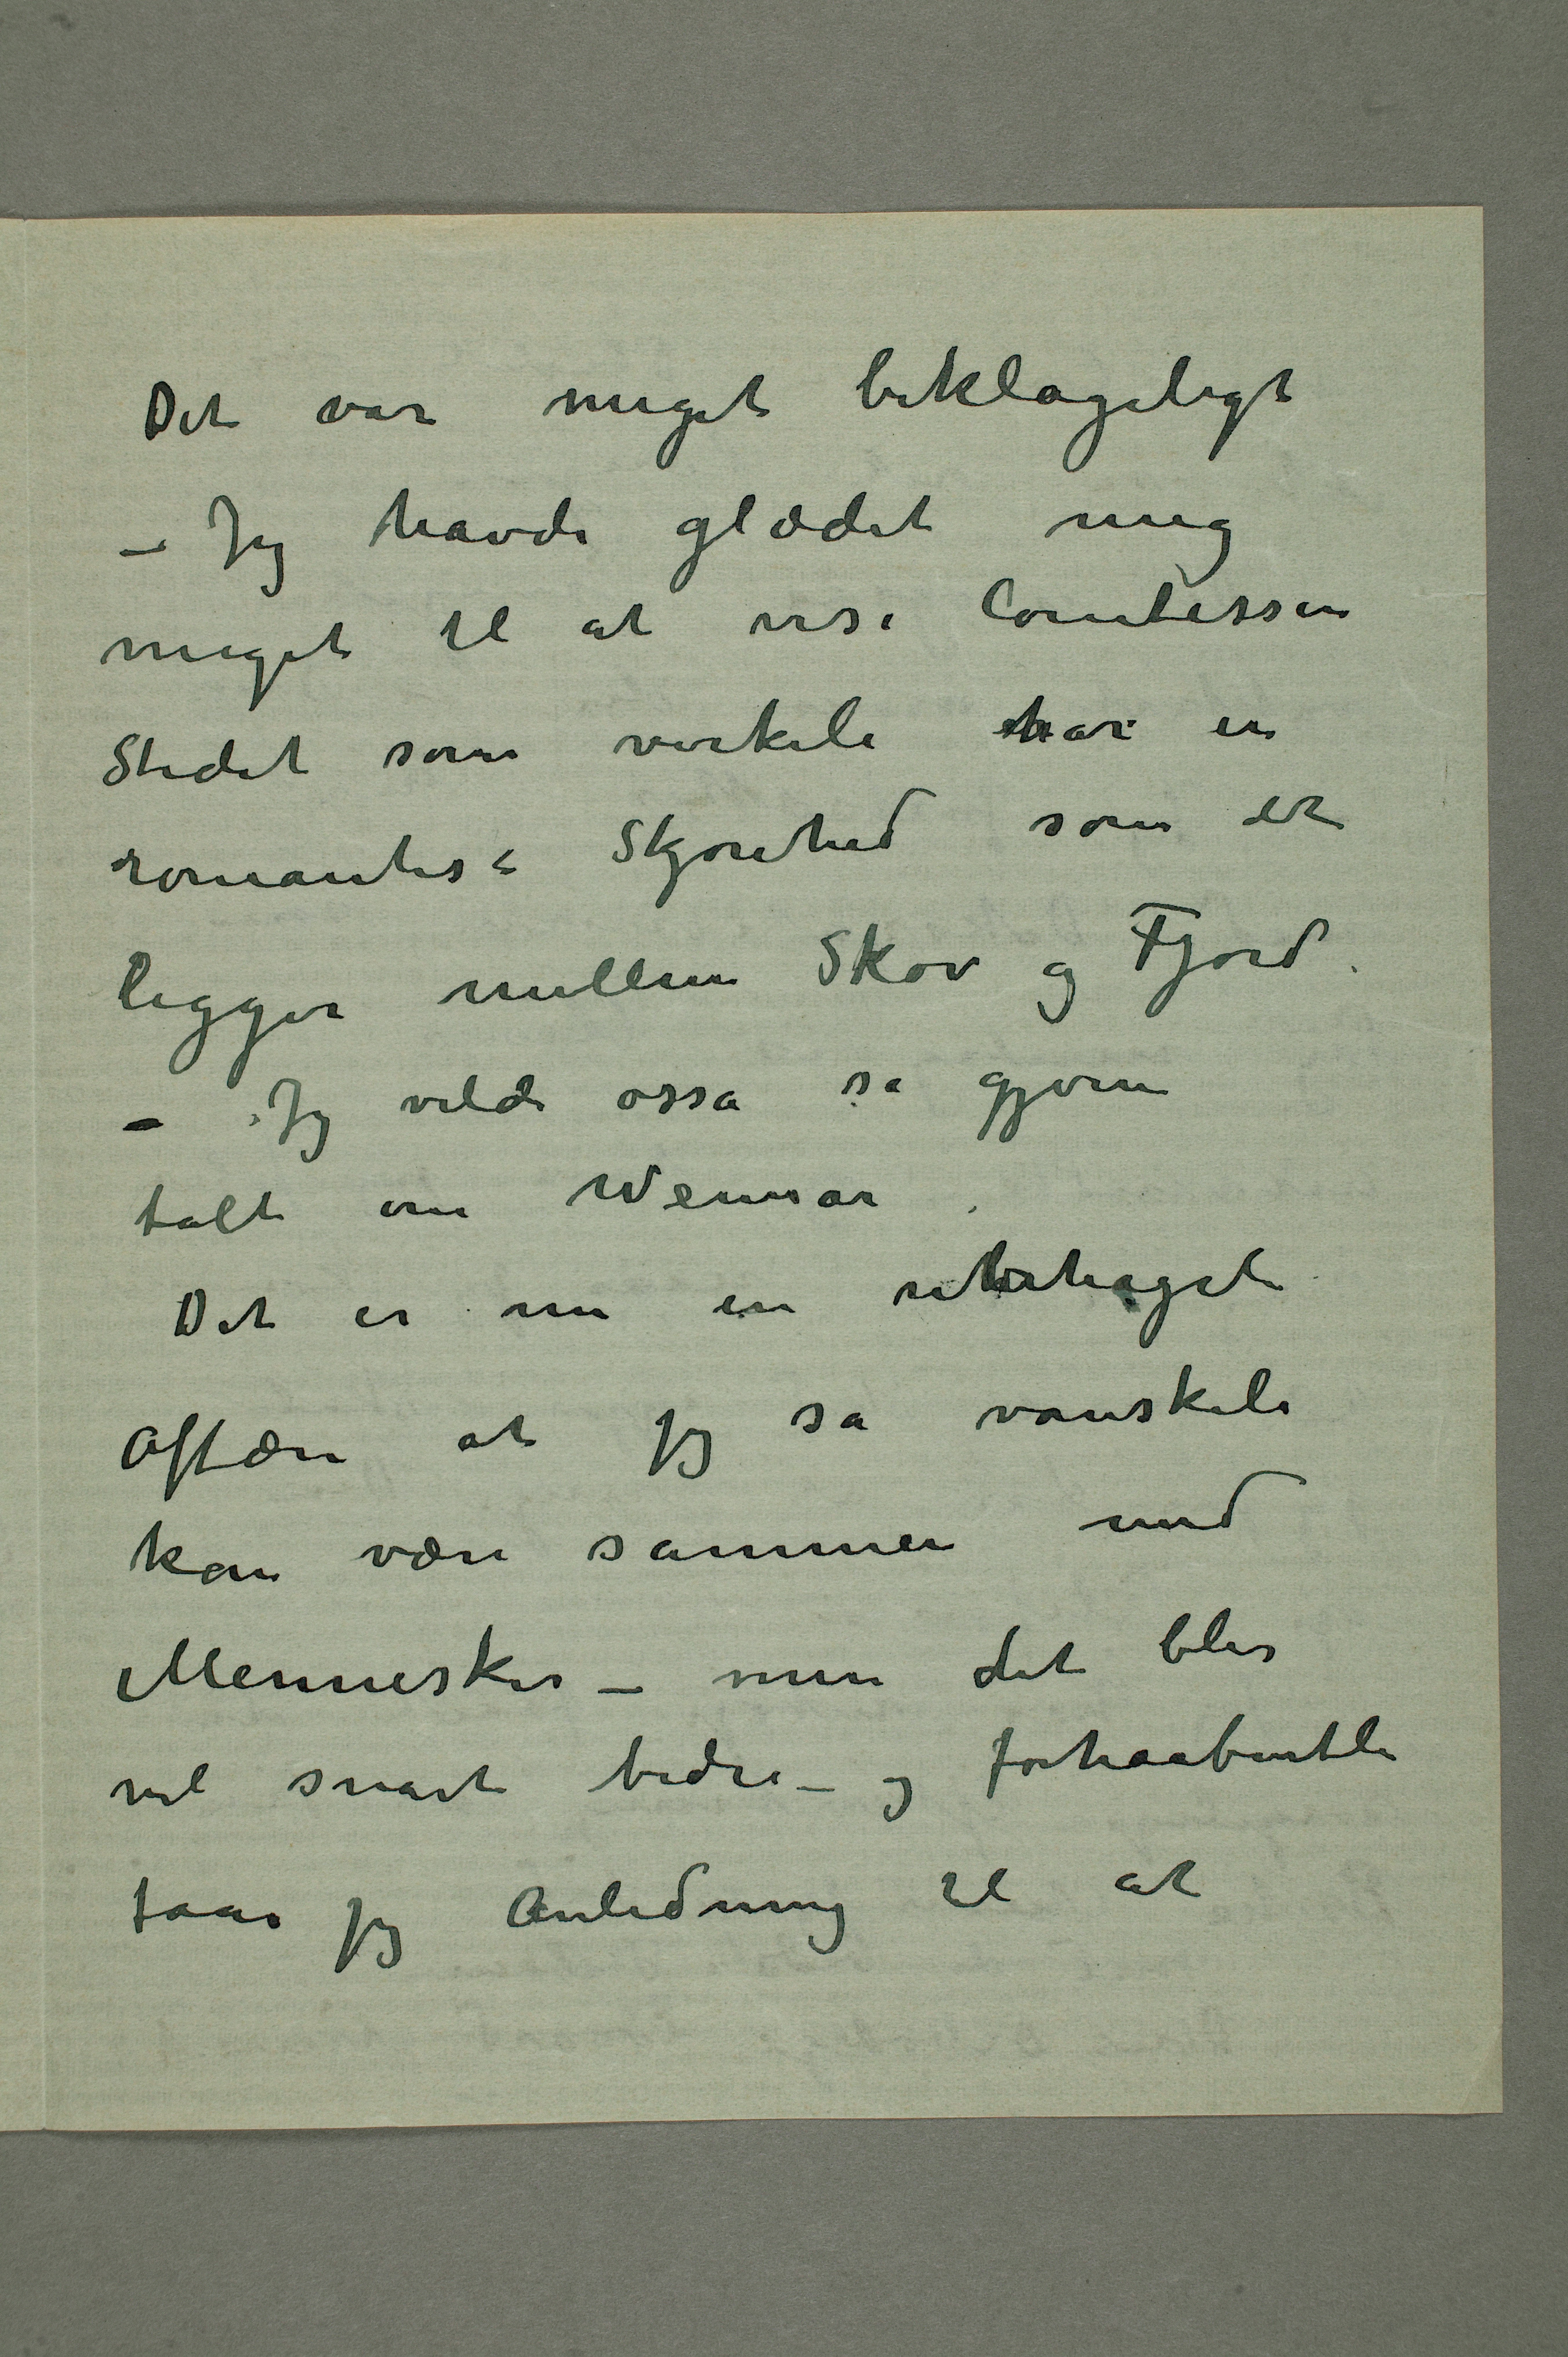 Det var meget beklageligt
– Jeg havde glædet meg
meget til at vise Comtessen
Stedet som virkeli har en
romantisk Skjønhed som det
ligger mellem Skov og Fjord.
– Jeg vilde osså så gjerne
talt om Weimar.
Det er nu en ubehageli
Affære at jeg så vanskeli
kan være sammen med
Mennesker – men det blir
vel snart bedre – og forhaabentli
faar jeg Anledning til at